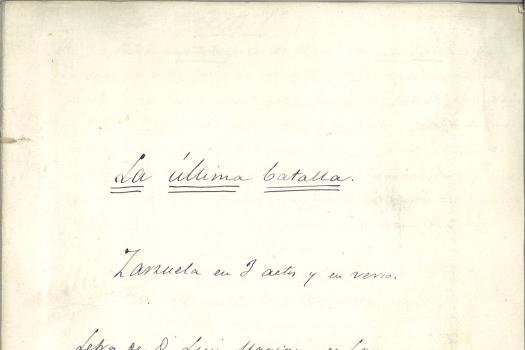 La última batalla.
Zarzuela en 3 actos y en verso.
Letra de D. Luis Mariano de La